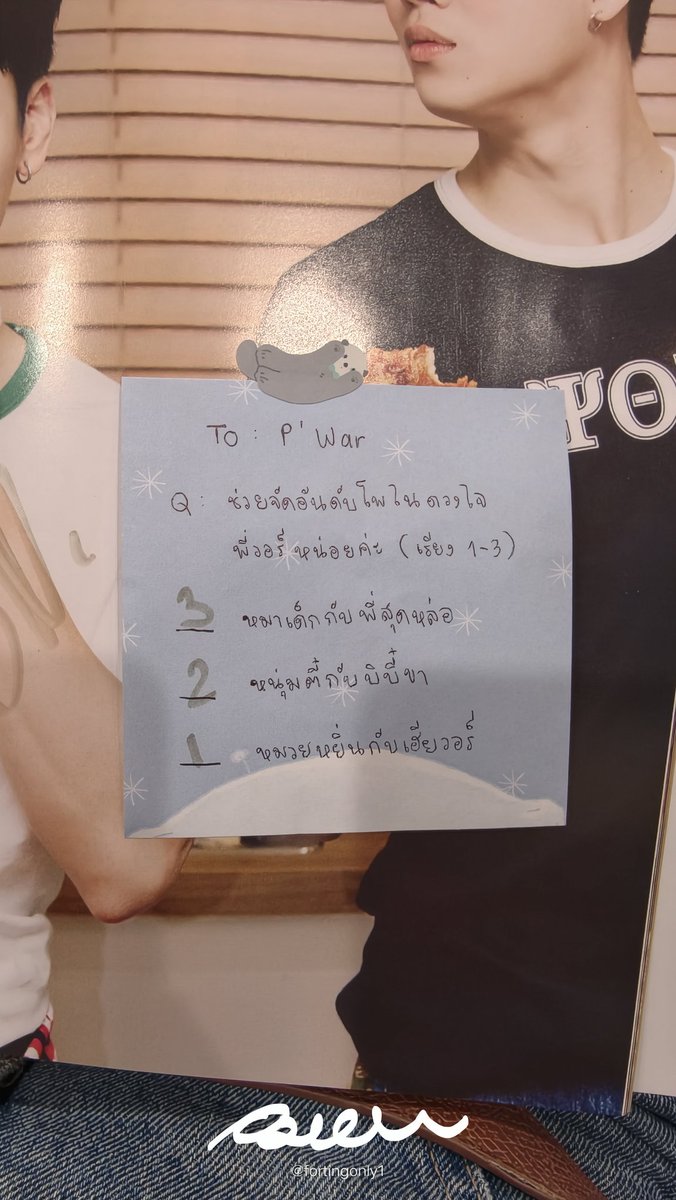 ΨΘ
To : P' War
Q : ช่วยจัดอันดับโพในดวงใจ
พี่วอร์ หน่อยค่ะ (เรียง 1-3)
3 หมาเด็กกับพี่สุดหล่อ
2 หนุ่มตี๋กับบิบี๋ขา
1 หมวยหยิ่นกับเฮียวอร์
@fortingonly1